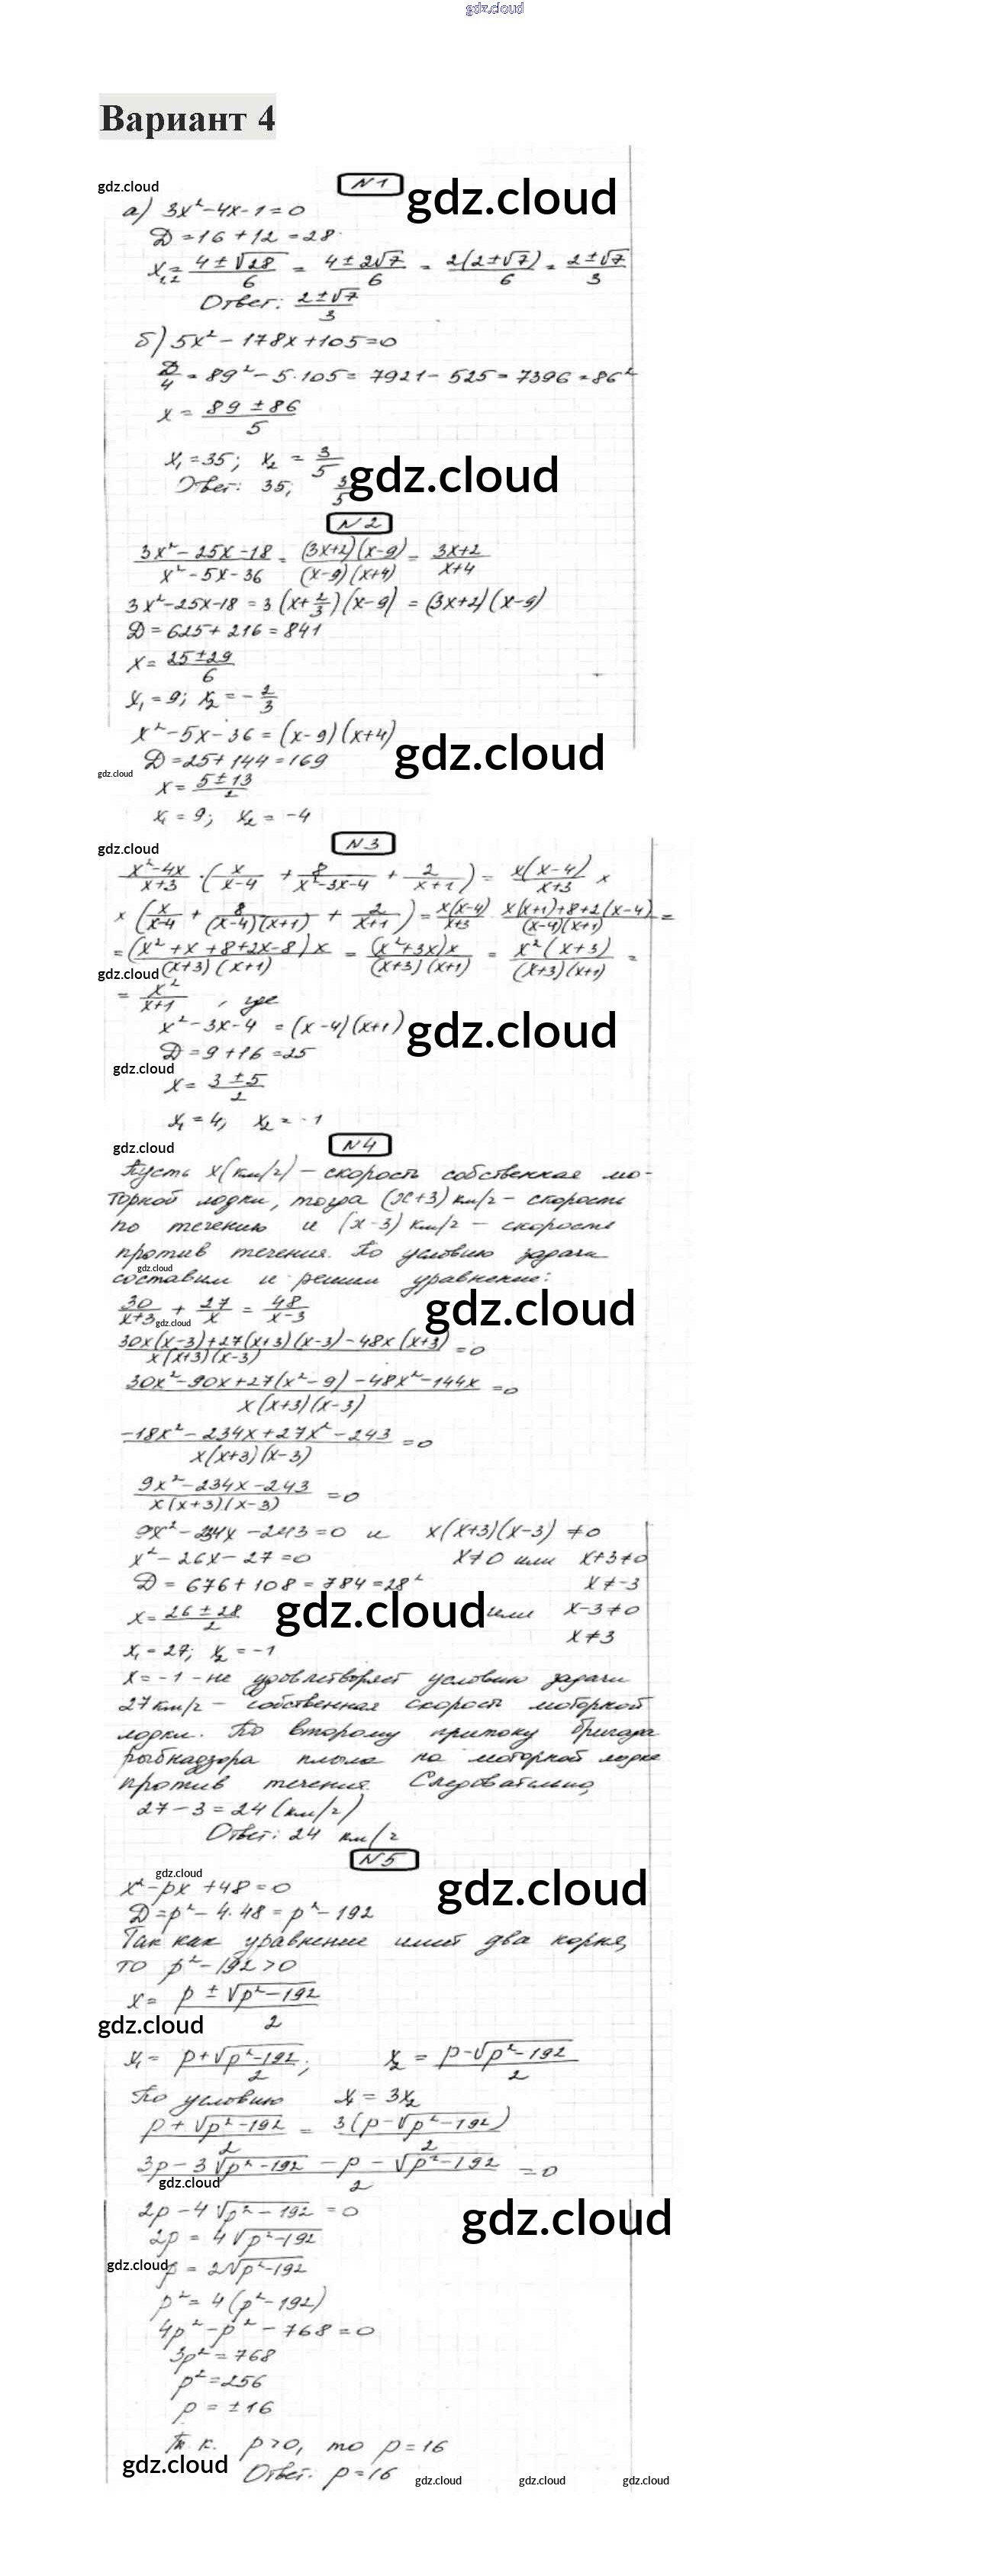 gdz.cloud
Вариант 4
gdz.cloud
N1
gdz.cloud
а) 3x²-4x-1=0
D=16+12=28
x₁,₂ = (4±√28)/6 = (4±2√7)/6 = 2(2±√7)/6 = (2±√7)/3
Ответ: (2±√7)/3
б) 5x²-178x+105=0
D/4 = 89²-5·105 = 7921-525 = 7396 = 86²
x = (89±86)/5
x₁=35; x₂ = 3/5
gdz.cloud
Ответ: 35; 3/5
N2
(3x²-25x-18)/(x²-5x-36) = (3x+2)(x-9)/(x-9)(x+4) = (3x+2)/(x+4)
3x²-25x-18 = 3(x+2/3)(x-9) = (3x+2)(x-9)
D=625+216=841
x = (25±29)/6
x₁=9; x₂=-2/3
x²-5x-36=(x-9)(x+4)
gdz.cloud
D=25+144=169
gdz.cloud
x = (5±13)/2
x₁=9; x₂=-4
N3
gdz.cloud
(x²-4x)/(x+3) · (x/(x-4) + 8/(x²-3x-4) + 2/(x+1)) = x(x-4)/(x+3) ×
× (x/(x-4) + 8/(x-4)(x+1) + 2/(x+1)) = x(x-4)/(x+3) · (x(x+1)+8+2(x-4))/(x-4)(x+1) =
= (x²+x+8+2x-8)x/(x+3)(x+1) = (x²+3x)x/(x+3)(x+1) = x²(x+3)/(x+3)(x+1) =
gdz.cloud
= x²/(x+1), где
x²-3x-4 = (x-4)(x+1)
gdz.cloud
D=9+16=25
gdz.cloud
x = (3±5)/2
x₁=4; x₂=-1
N4
gdz.cloud
Пусть x(км/ч) – скорость собственная мо-
торной лодки, тогда (x+3) км/ч – скорость
по течению и (x-3) км/ч – скорость
против течения. По условию задачи
gdz.cloud
составим и решим уравнение:
30/(x+3) + 27/x = 48/(x-3)
gdz.cloud
gdz.cloud
(30x(x-3)+27(x+3)(x-3)-48x(x+3))/x(x+3)(x-3) = 0
(30x²-90x+27(x²-9)-48x²-144x)/x(x+3)(x-3) = 0
(-18x²-234x+27x²-243)/x(x+3)(x-3) = 0
(9x²-234x-243)/x(x+3)(x-3) = 0
9x²-234x-243=0 и x(x+3)(x-3)≠0
x²-26x-27=0 x≠0 или x+3≠0
D=676+108=784=28² x≠-3
x = (26±28)/2 gdz.cloud или x-3≠0
x≠3
x₁=27; x₂=-1
x=-1 - не удовлетворяет условию задачи
27 км/ч – собственная скорость моторной
лодки. По второму притоку бригада
рыбнадзора плыла на моторной лодке
против течения. Следовательно,
27-3=24 (км/ч)
Ответ: 24 км/ч
N5
gdz.cloud
gdz.cloud
x²-px+48=0
D=p²-4·48=p²-192
Так как уравнение имеет два корня,
то p²-192>0
x = (p±√(p²-192))/2
gdz.cloud
x₁ = (p+√(p²-192))/2; x₂ = (p-√(p²-192))/2
По условию x₁=3x₂
(p+√(p²-192))/2 = 3(p-√(p²-192))/2
(3p-3√(p²-192)-p-√(p²-192))/2 = 0
gdz.cloud
2p-4√(p²-192)=0
gdz.cloud
2p = 4√(p²-192)
gdz.cloud
p = 2√(p²-192)
p²=4(p²-192)
4p²-p²-768=0
3p²=768
p²=256
p=±16
Т.к. p>0, то p=16
gdz.cloud
Ответ: p=16
gdz.cloud gdz.cloud gdz.cloud